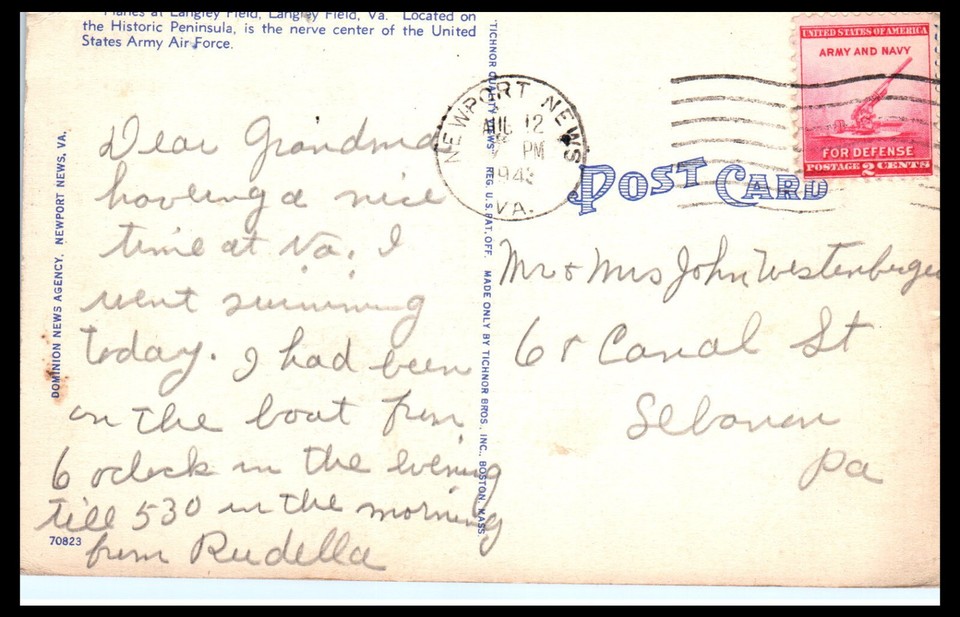 Planes at Langley Field, Langley Field, Va. Located on
the Historic Peninsula, is the nerve center of the United
States Army Air Force.
Dear Grandma
having a nice
time at Va. I
went swimming
today. I had been
on the boat from
6 oclock in the evening
till 530 in the morning
from Rudella
70823
DOMINION NEWS AGENCY, NEWPORT NEWS, VA.
"TICHNOR QUALITY VIEWS" REG. U.S. PAT. OFF. MADE ONLY BY TICHNOR BROS., INC., BOSTON, MASS.
NEWPORT NEWS
AUG 12
PM
1943
VA.
UNITED STATES OF AMERICA
ARMY AND NAVY
FOR DEFENSE
POSTAGE 2 CENTS
POST CARD
Mr & Mrs John Westenberger
Canal St
Lebanon
Pa